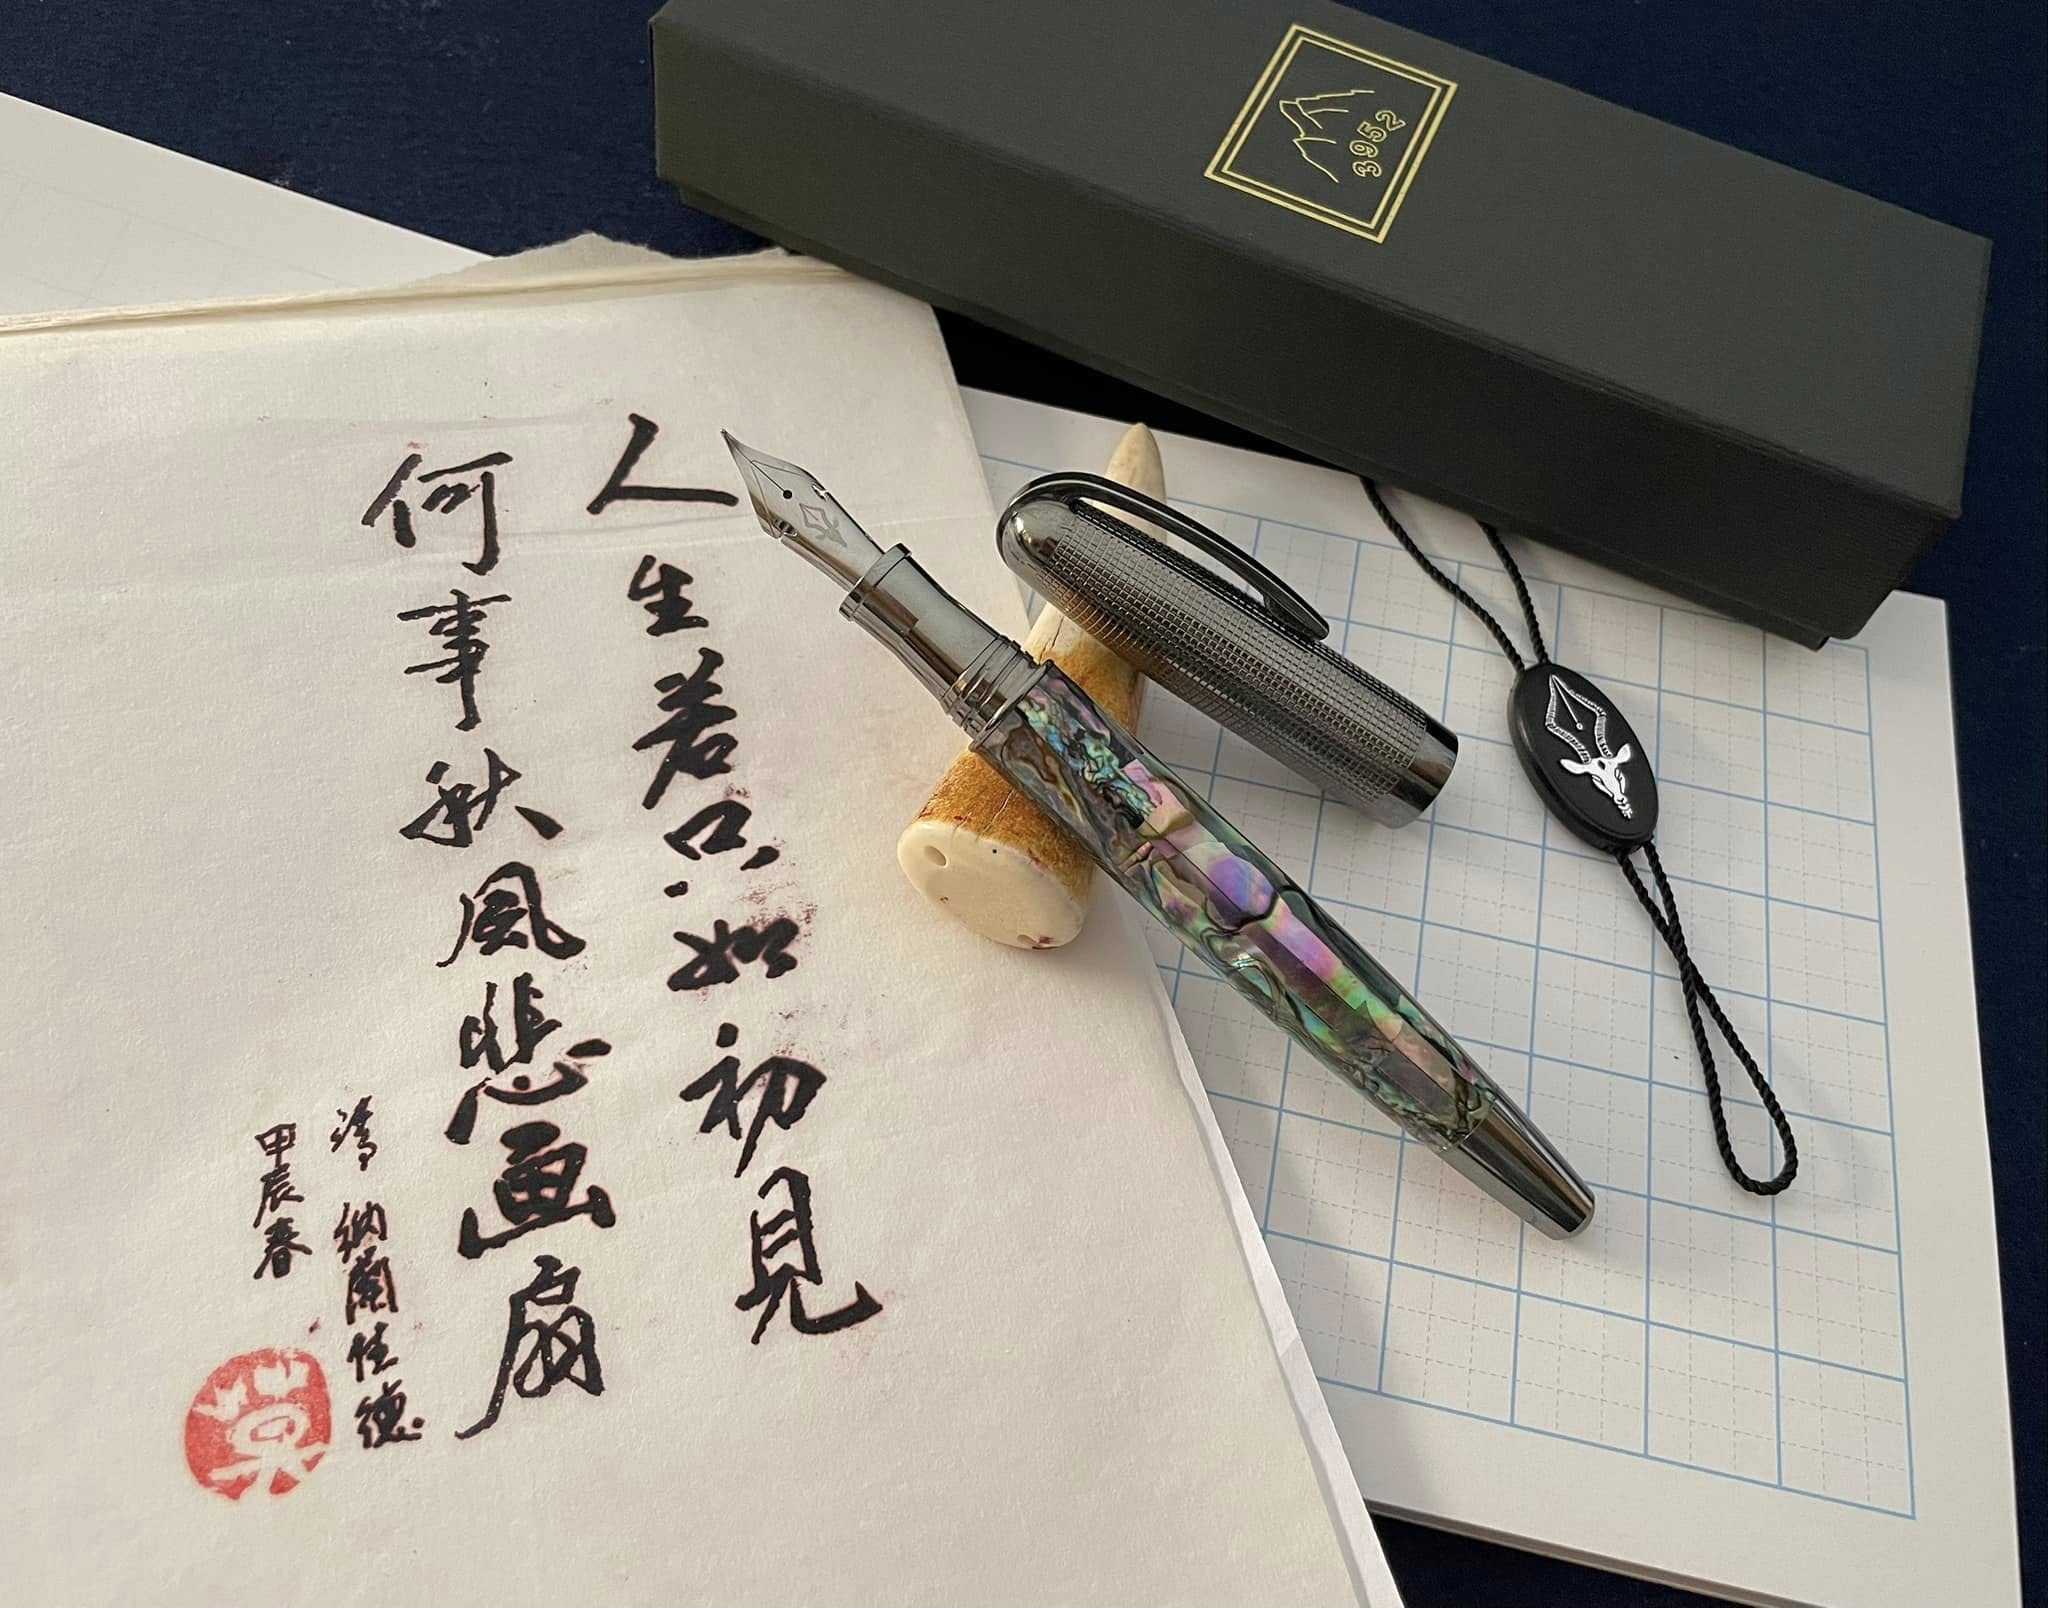 人生若只如初見
何事秋風悲画扇
清 納蘭性德
甲辰春
3952